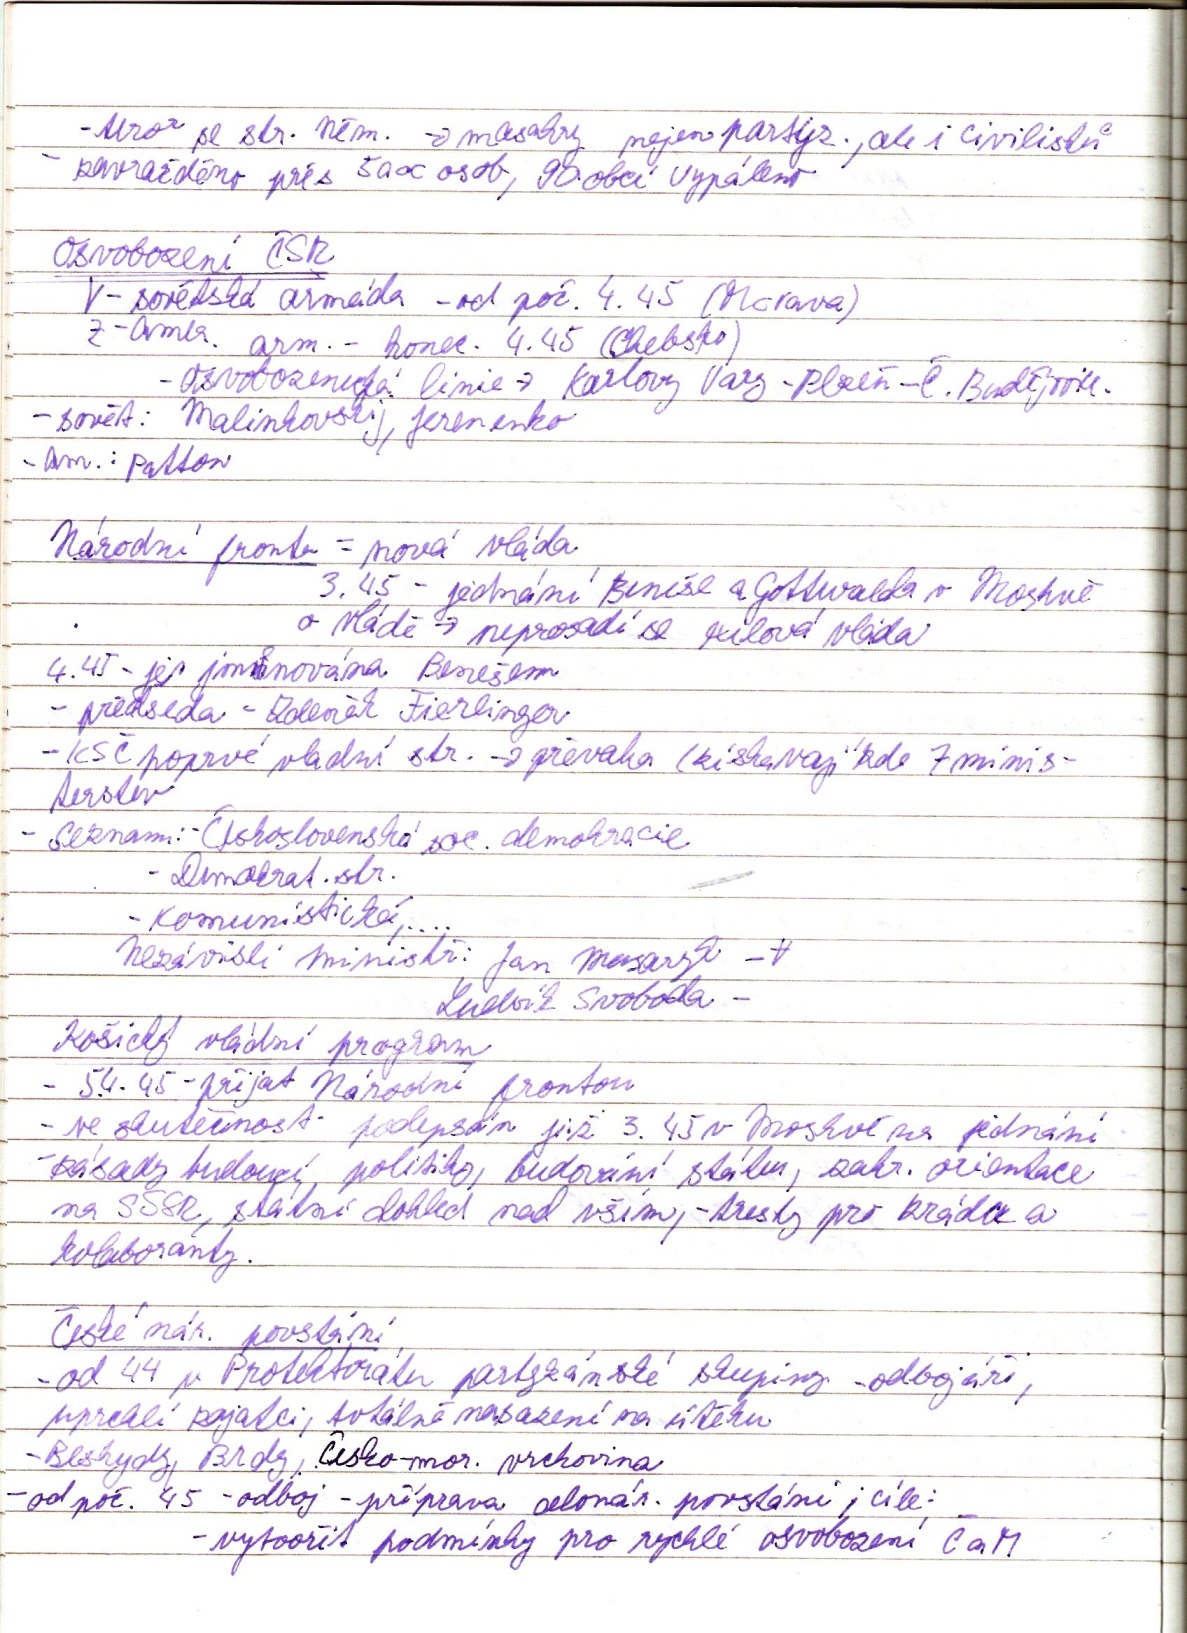 - teror ze str. něm. → masakry nejen partyz., ale i civilistů
- zavražděno přes 5000 osob, 90 obcí vypáleno
Osvobození ČSR
V - sovětská armáda - od poč. 4.45 (Morava)
Z - amer. arm. - konec. 4.45 (Chebsko)
- osvobozenecká linie → Karlovy Vary - Plzeň - Č. Budějovice.
- sovět: Malinkovskij, Jeremenko
- am.: Patton
Národní fronta = nová vláda
3.45 - jednání Beneše a Gottwalda v Moskvě
o vládě → neprosadí se exilová vláda
4.45 - je jmenována Benešem
- předseda - Zdeněk Fierlinger
- KSČ poprvé vládní str. → převaha (získávají zde 7 minis-
terstev
- Seznam: - Československá soc. demokracie
- Demokrat. str.
- Komunistická,....
Nezávislí ministři: Jan Masaryk -
Ludvík Svoboda -
Košický vládní program
- 5.4.45 - přijat Národní frontou
- ve skutečnost podepsán již 3.45 v Moskvě na jednání
- zásady budoucí politiky, budování státu, zahr. orientace
na SSSR, státní dohled nad vším, - tresty pro zrádce a
kolaboranty.
České nár. povstání
- od 44 v Protektorátu partyzánské skupiny - odbojáři,
uprchlí zajatci, totálně nasazení na útěku
- Beskydy, Brdy, Česko-mor. vrchovina
- od poč. 45 - odboj - příprava celonár. povstání; cíle:
- vytvořit podmínky pro rychlé osvobození Č a M